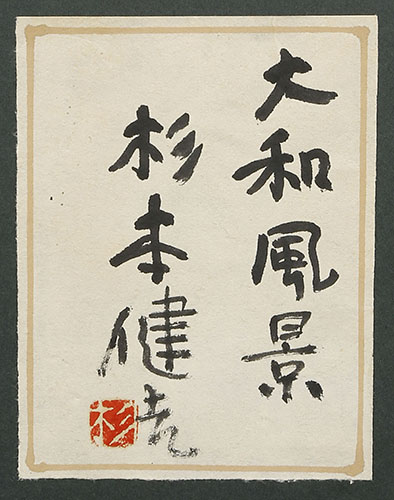 大和風景
杉本健吉
杉